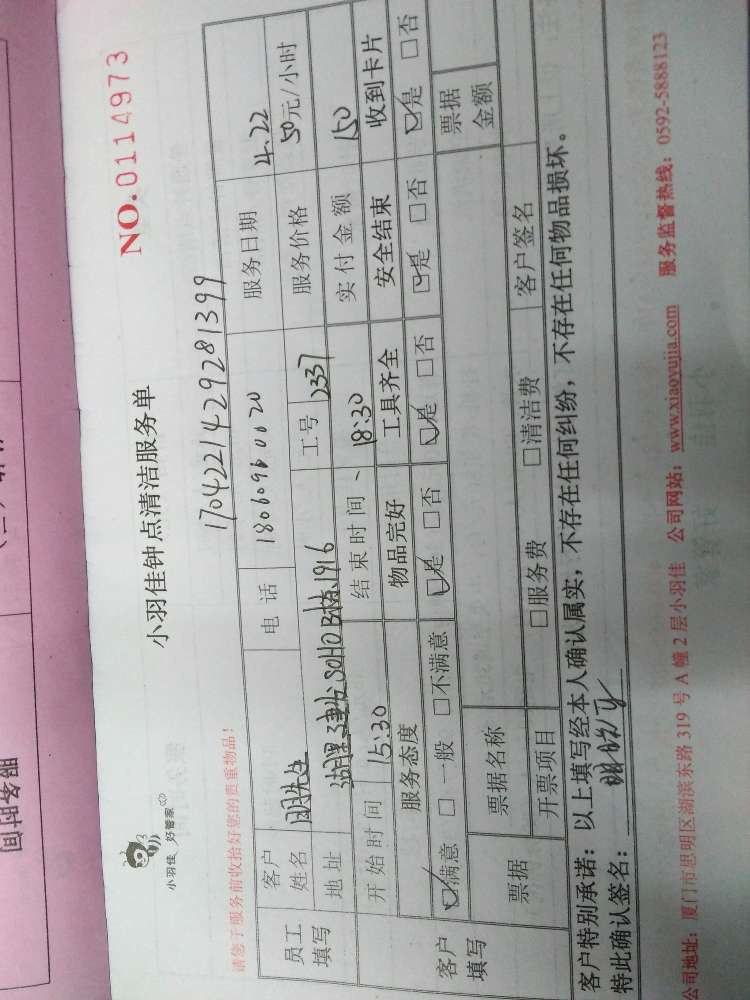 小羽佳 好管家
小羽佳钟点清洁服务单
NO.0114973
请您于服务前收拾好您的贵重物品!
1704221429281399
员工填写
客户姓名 明先生 电 话 18060960020 服务日期 4.22
地 址 湖里建发SOHO B栋1916 工号 2337 服务价格 50元/小时
开 始 时 间 15:30 结 束 时 间、 18:30 实 付 金 额 150
客户填写
服务态度 物品完好 工具齐全 安全结束 收到卡片
☑满意 □ 一般 □不满意 ☑是 □否 ☑是 □否 ☑是 □否 ☑是 □否
票据 票据名称 票据金额
开票项目 □服务费 □清洁费 客户签名
客户特别承诺:以上填写经本人确认属实,不存在任何纠纷,不存在任何物品损坏。
特此确认签名:
公司地址:厦门市思明区湖滨东路 319 号 A 幢 2 层小羽佳 公司网站:www.xiaoyujia.com 服务监督热线:0592-5888123
服务时间